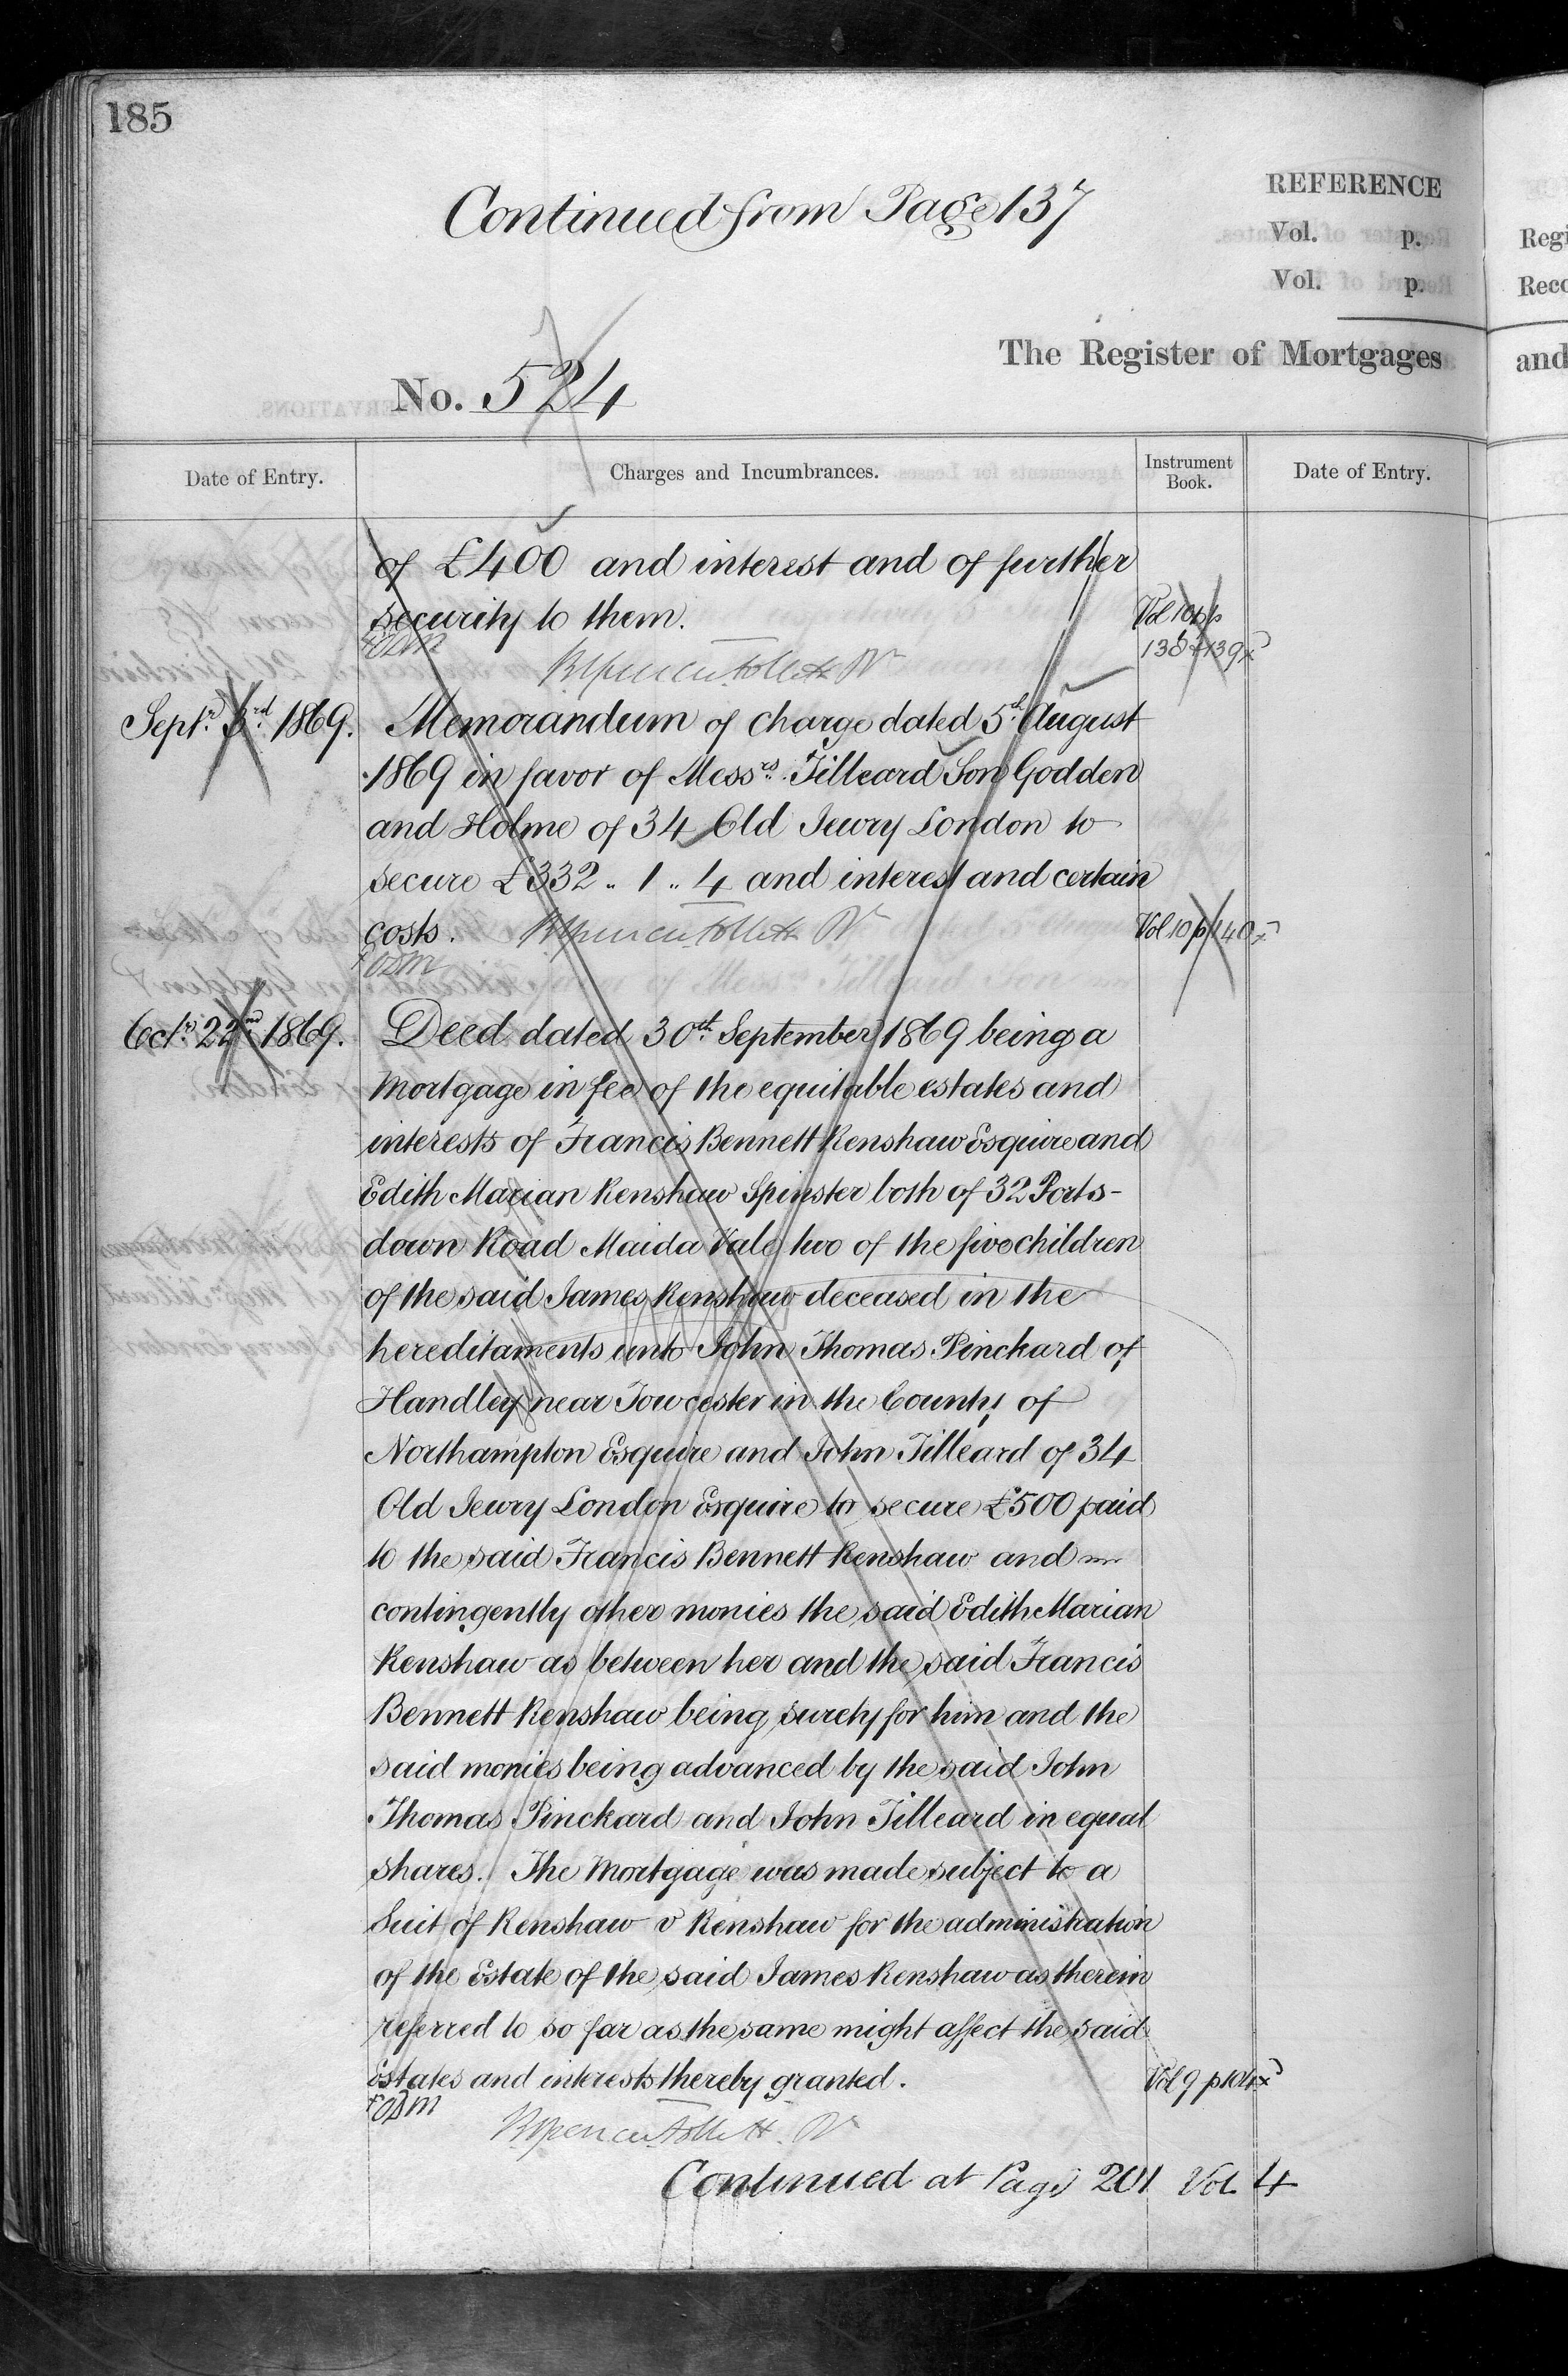 185
Continued from Page 137
REFERENCE
Vol. p.
Vol. p.
The Register of Mortgages
No. 524
Date of Entry.
Charges and Incumbrances.
Instrument Book.
Date of Entry.
of £400 and interest and of further
security to them.
Vol 10 p
138 & 139
Sept.r 3rd 1869.
Memorandum of charge dated 5th August
1869 in favor of Mess.rs Tilleard Son Godden
and Holme of 34 Old Jewry London to
secure £332 .. 1 .. 4 and interest and certain
costs.
Vol 10 p 140
Oct.r 22nd 1869.
Deed dated 30th September 1869 being a
Mortgage in fee of the equitable estates and
interests of Francis Bennett Renshaw Esquire and
Edith Marian Renshaw Spinster both of 32 Ports-
down Road Maida Vale two of the five children
of the said James Renshaw deceased in the
hereditaments unto John Thomas Pinckard of
Handley near Towcester in the County of
Northampton Esquire and John Tilleard of 34
Old Jewry London Esquire to secure £500 paid
to the said Francis Bennett Renshaw and
contingently other monies the said Edith Marian
Renshaw as between her and the said Francis
Bennett Renshaw being surety for him and the
said monies being advanced by the said John
Thomas Pinckard and John Tilleard in equal
shares. The Mortgage was made subject to a
Suit of Renshaw v Renshaw for the administration
of the Estate of the said James Renshaw as therein
referred to so far as the same might affect the said
Estates and interests thereby granted.
Vol 9 p 104
Continued at Page 201 Vol 4
Regi
Reco
and